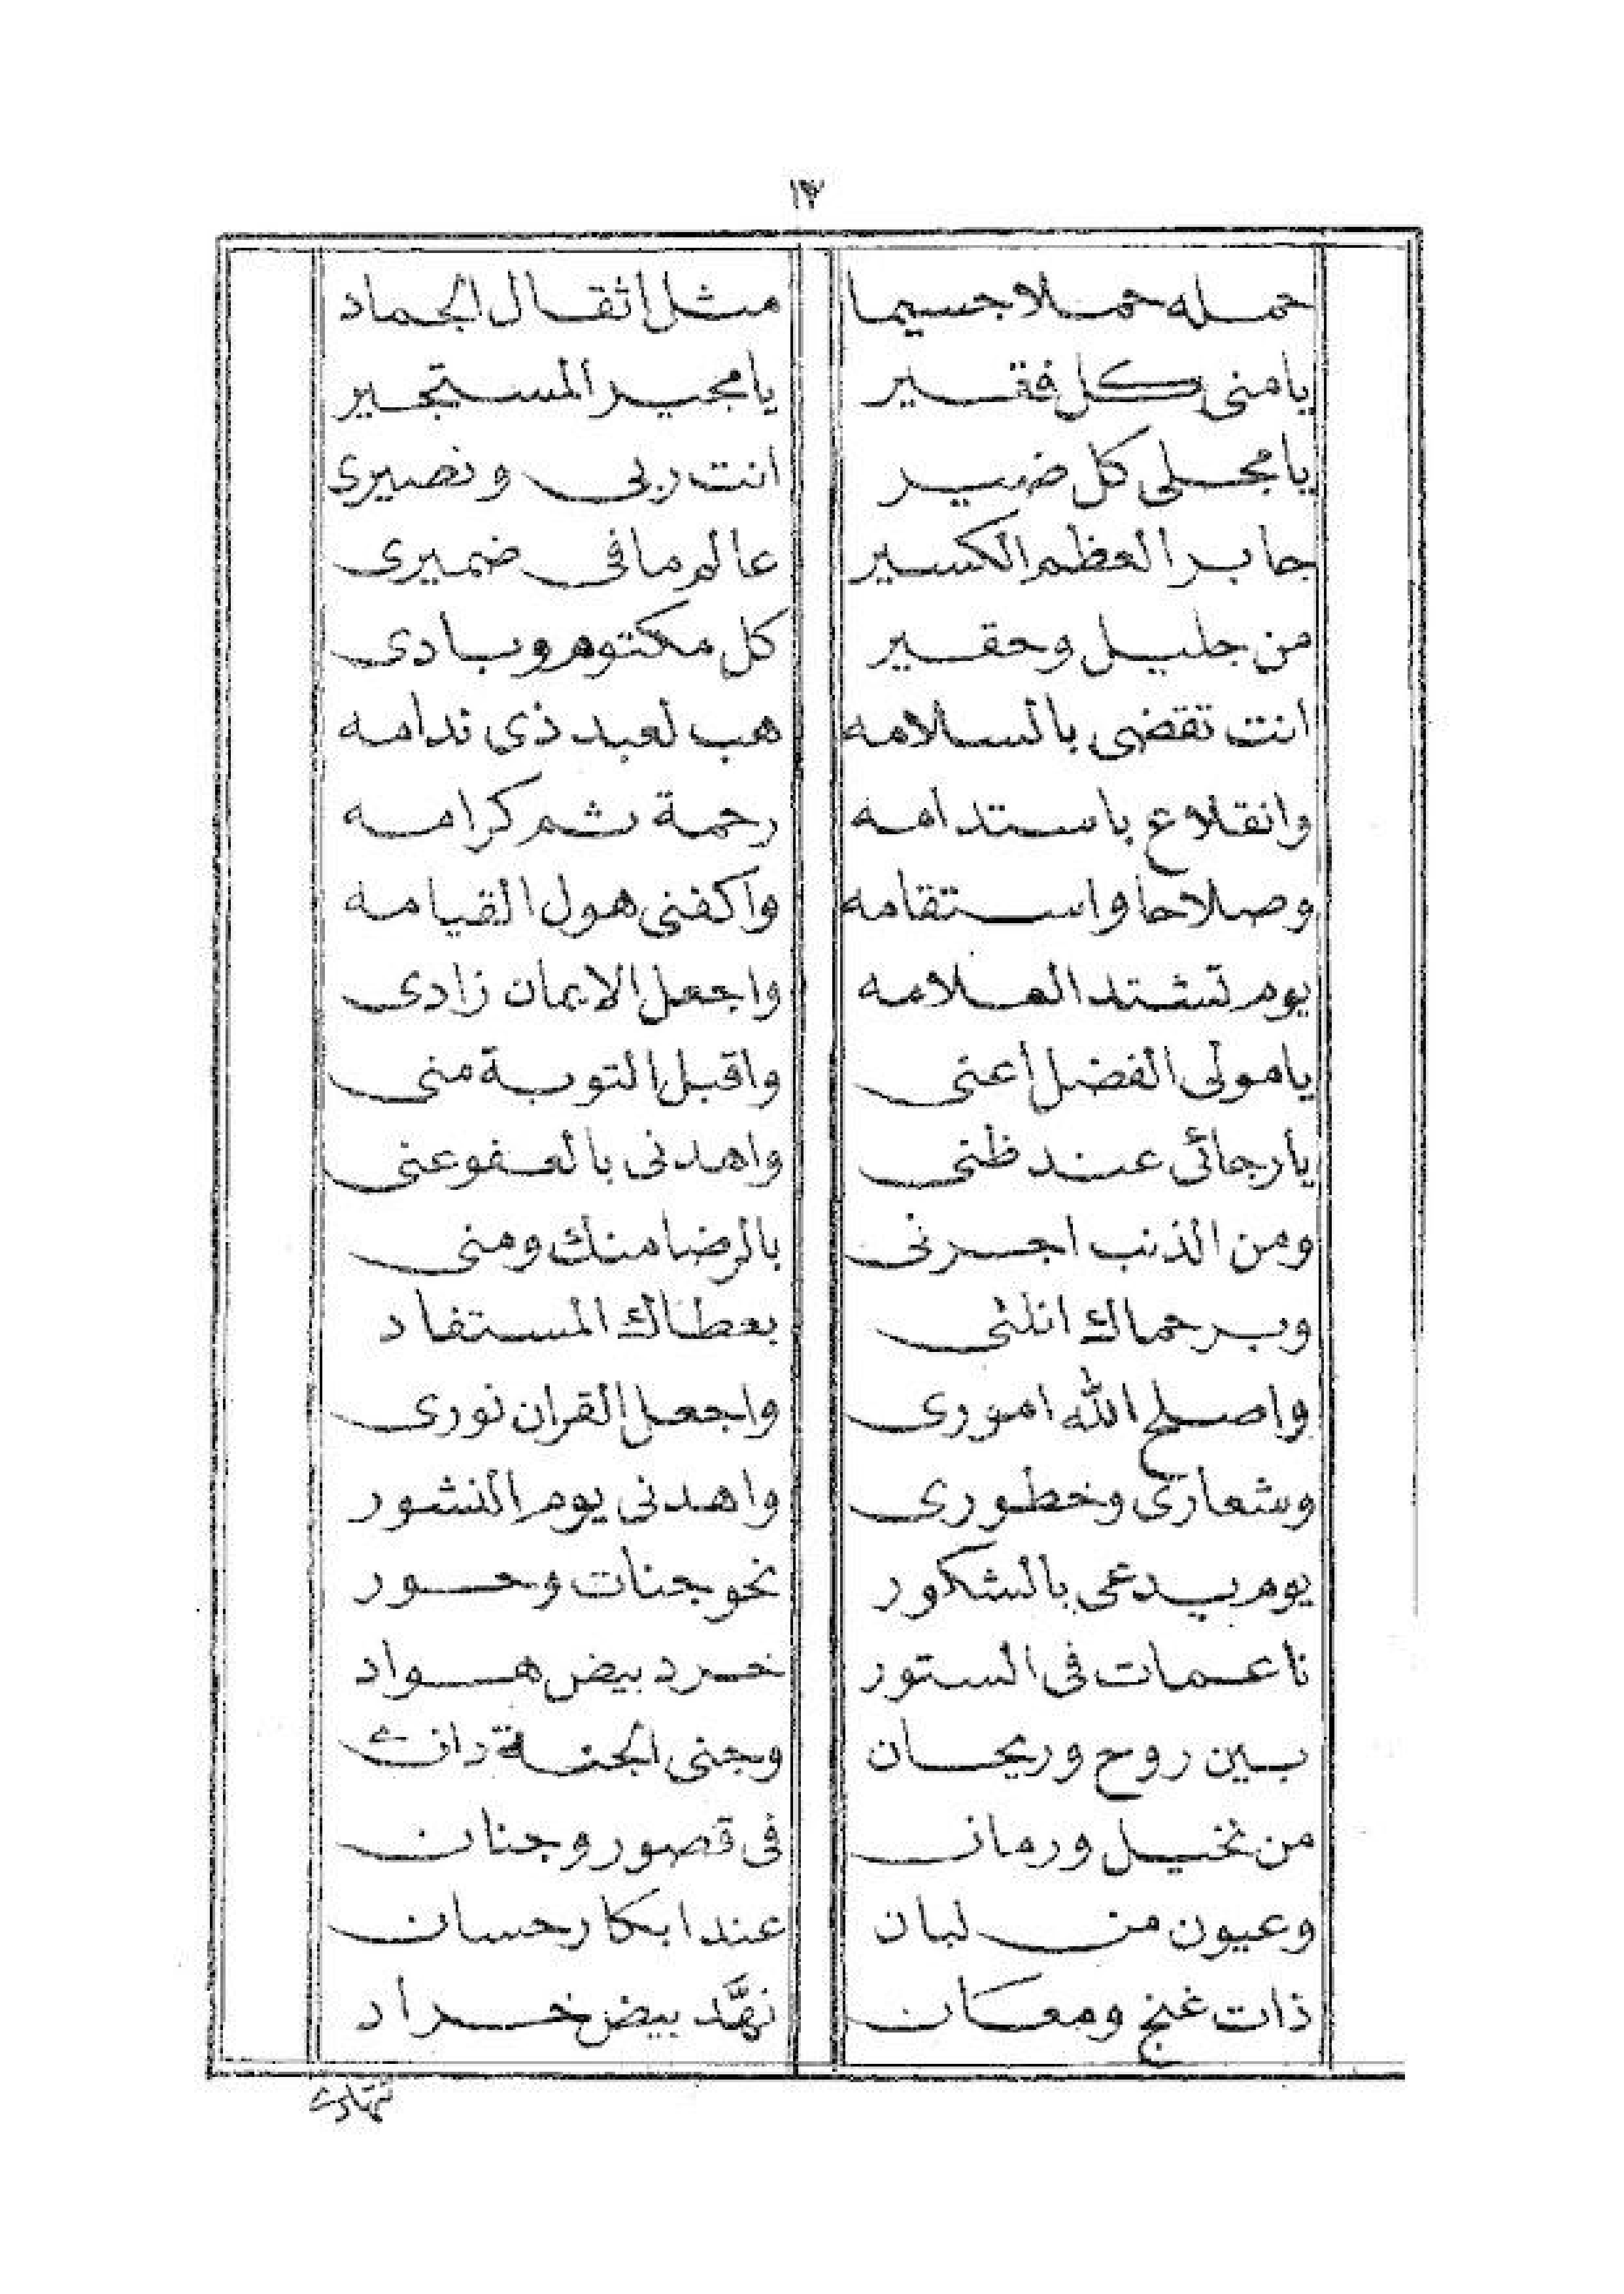 ١٧
حمله حملا جسيما مثل اثقال الجماد
يا منى كل فقير يا مجير المستجير
يا مجلى كل ضير انت ربى ونصيرى
جابر العظم الكسير عالم ما فى ضميرى
من جليل وحقير كل مكتوم وبادى
انت تقضى بالسلامه هب لعبد ذى ندامه
وانقلاع باستدامه رحمة ثم كرامه
وصلاحا واستقامه واكفنى هول القيامه
يوم تشتد العلامه واجعل الايمان زادى
يا مولى الفضل اعنى واقبل التوبة منى
يا رجائى عند ظنى واهدنى بالعفو عنى
ومن الذنب اجرنى بالرضا منك ومنى
وبرحماك انلنى بعطاك المستفاد
واصلح الله امورى واجعل القران نورى
وشعارى وخطورى واهدنى يوم النشور
يوم يدعى بالشكور نحو جنات وحور
ناعمات فى الستور خرد بيض هواد
بين روح وريحان وجنى الجنة دانى
من نخيل ورمان فى قصور وجنان
وعيون من لبان عند ابكار حسان
ذات غنج ومعان نهَّد بيض خراد
تتهادى